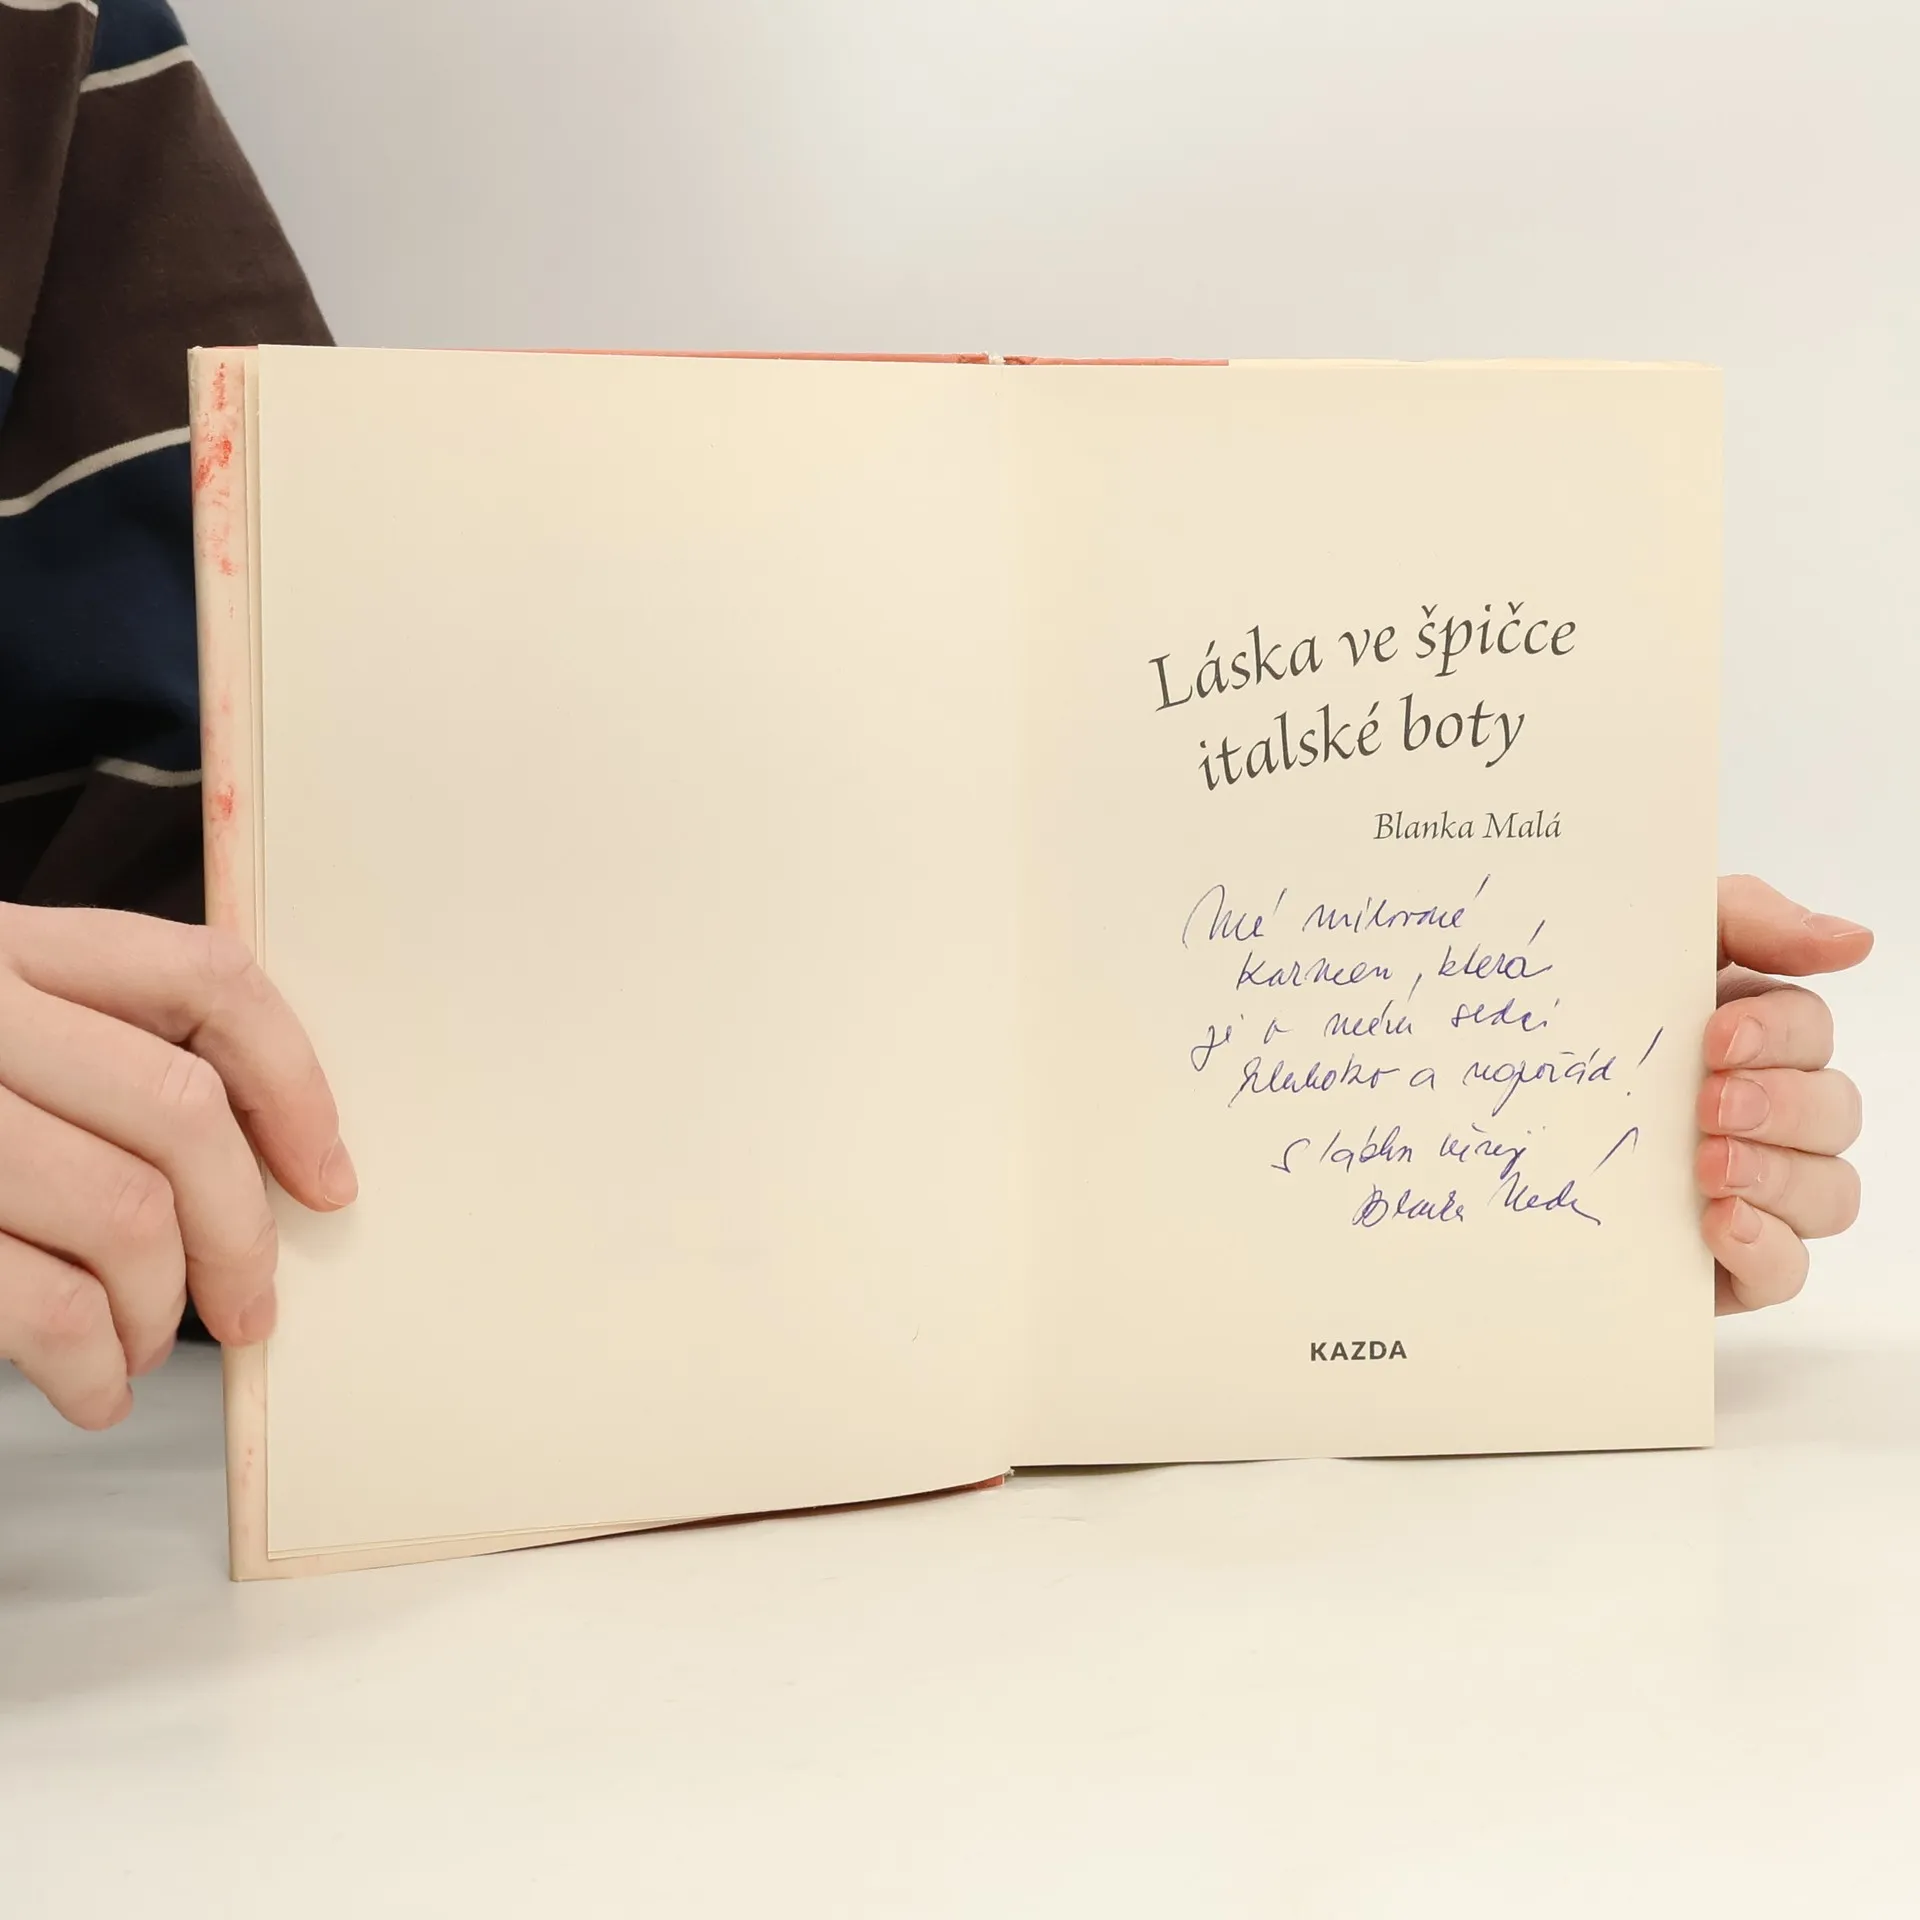 Láska ve špičce
italské boty
Blanka Malá
Mé milované
Karmen, která
je v mém srdci
hluboko a napořád!
S láskou
Blanka
KAZDA